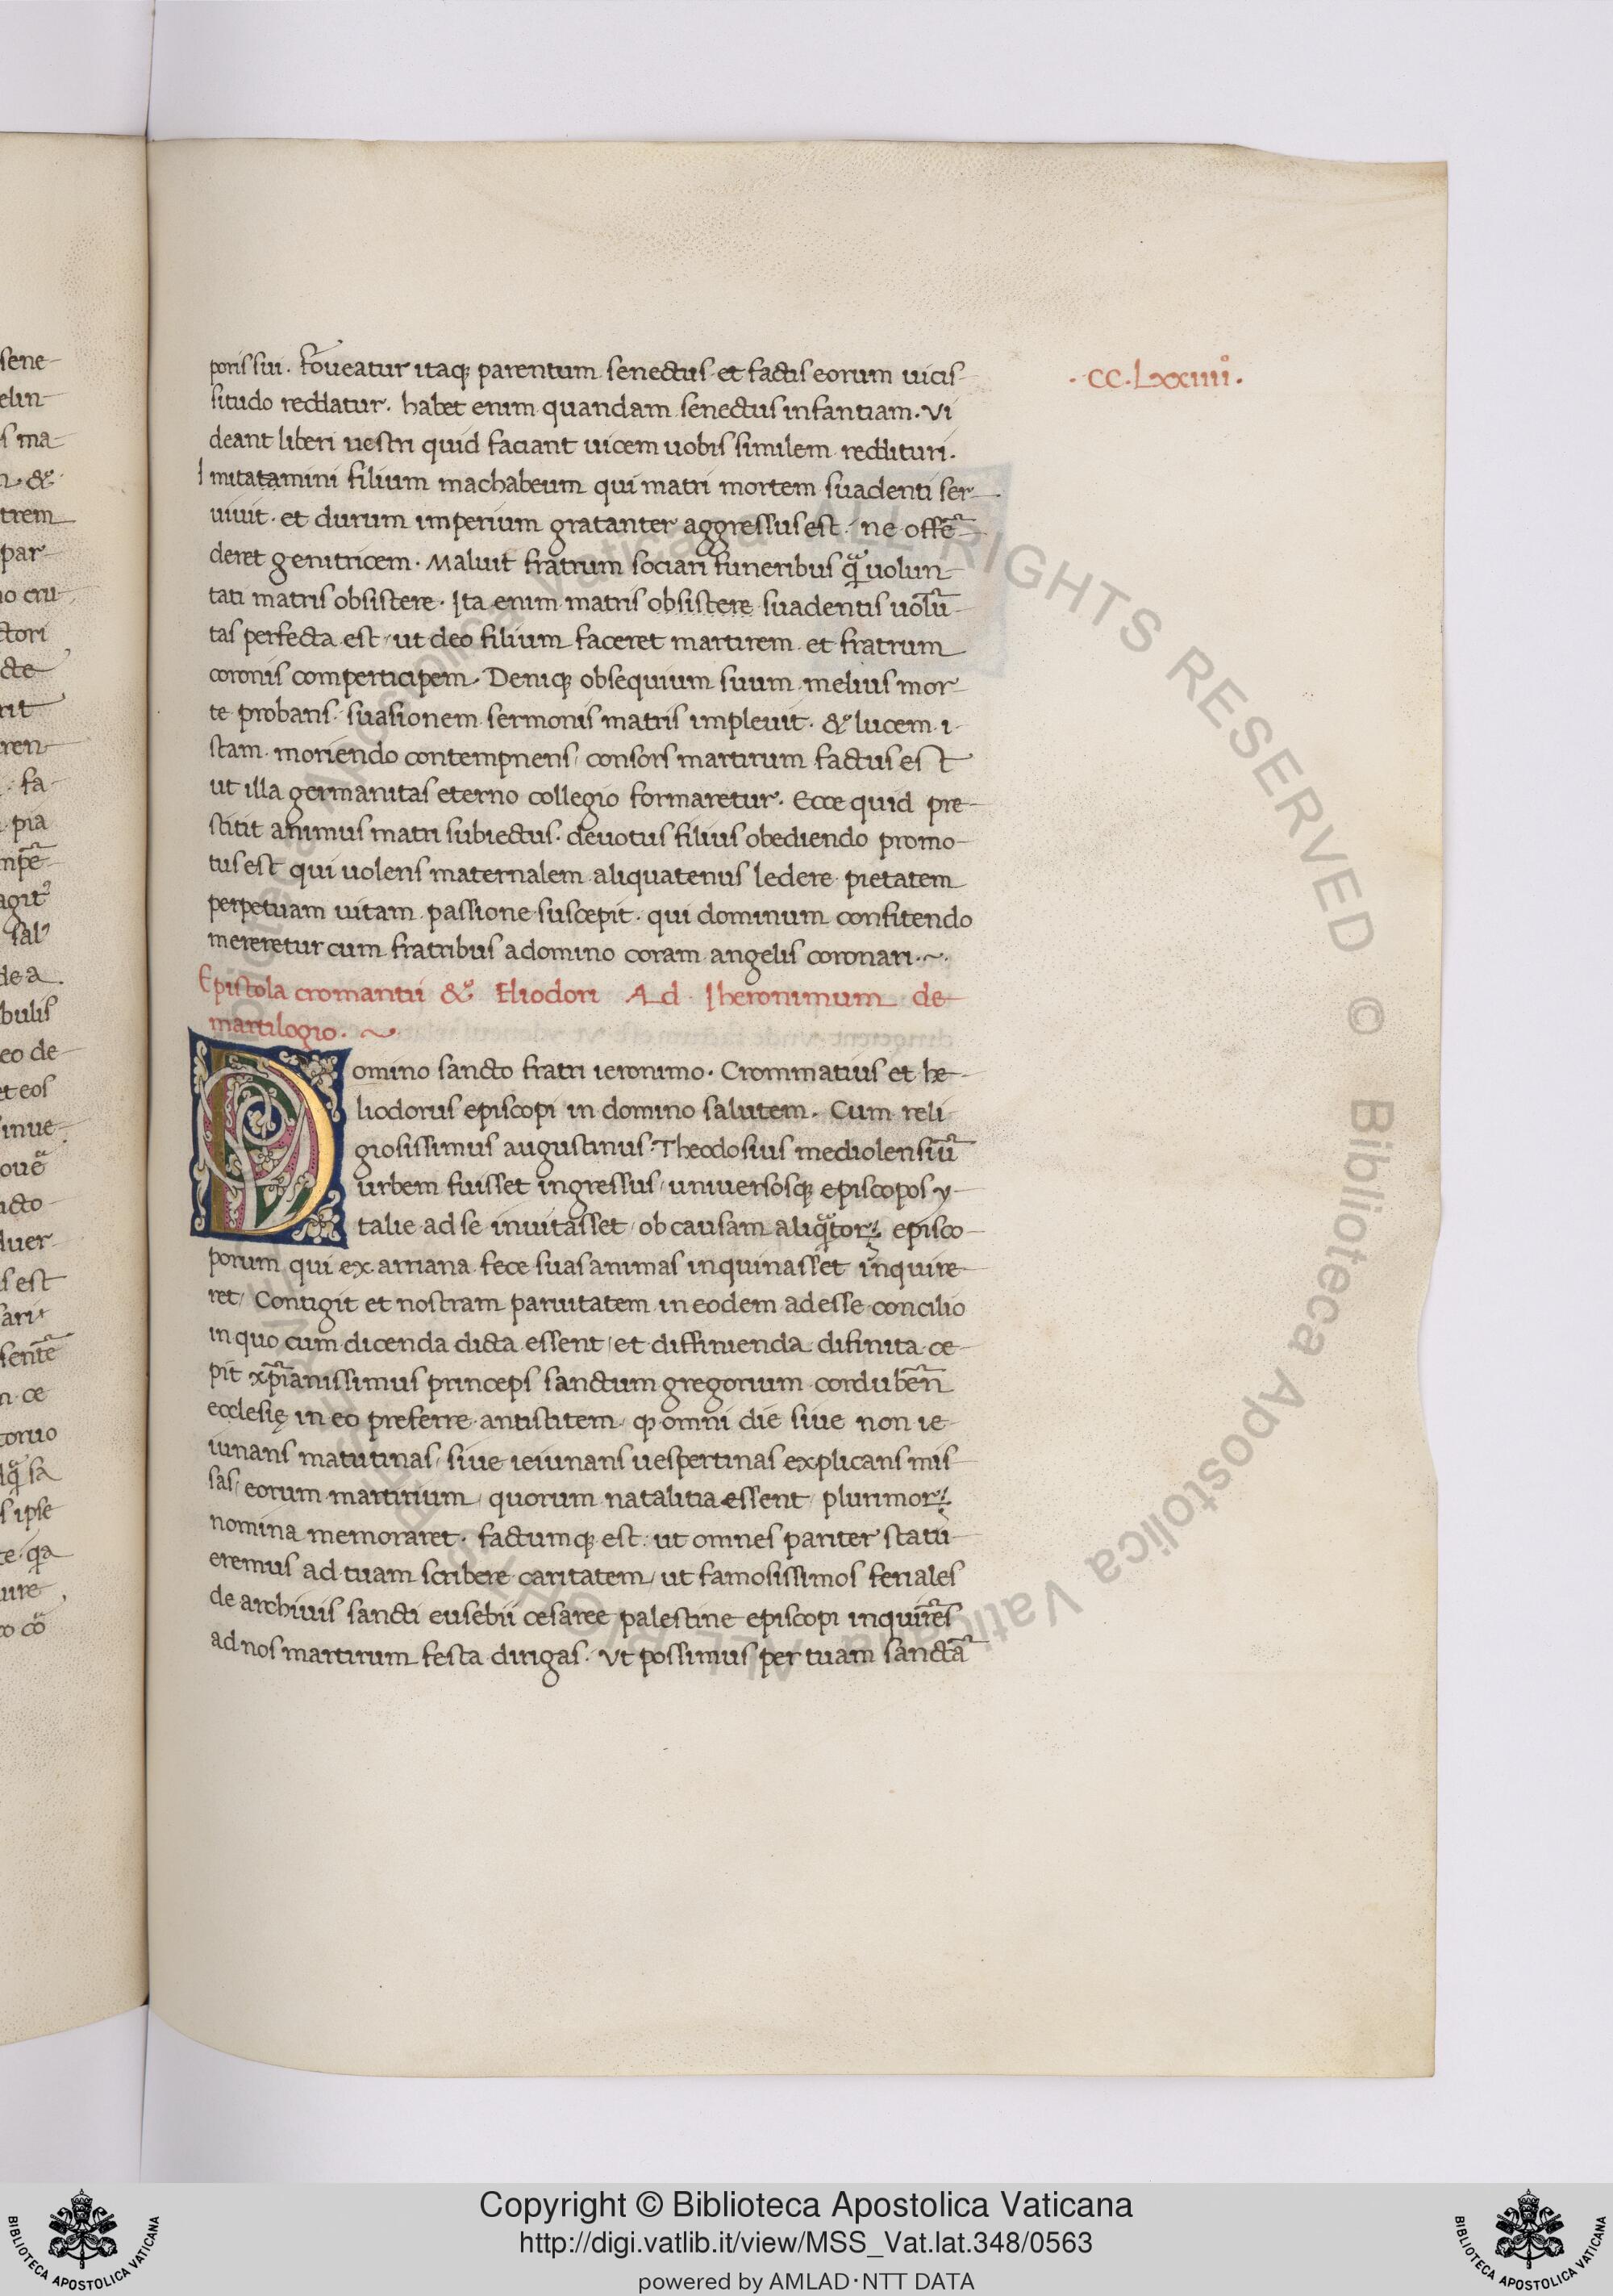 poris sui. foveatur itaq; parentum senectus et factis eorum uicis-
situdo reddatur. habet enim quandam senectus infantiam. Vi
deant liberi uestri quid faciant uicem uobis similem reddituri.
Imitatamini filium machabeum qui matri mortem suadenti ser
uiuit. et durum imperium gratanter aggressus est. ne offē
deret genitricem. Maluit fratrum sociari funeribus qͣ uolun
tati matris obsistere. Ita enim matris obsistere suadentis uolū
tas perfecta est, ut deo filium faceret martirem et fratrum
coronis comperticipem. Deniq; obsequium suum melius mor
te probans. suasionem sermonis matris impleuit. & lucem i-
stam moriendo contempnens, consors martirum factus est
ut illa germanitas eterno collegio formaretur. Ecce quid pre-
stitit animus matri subiectus. deuotus filius obediendo promo-
tus est qui uolens maternalem aliquatenus ledere pietatem
perpetuam uitam passione suscepit. qui dominum confitendo
mereretur cum fratribus a domino coram angelis coronari. ~
.CC.Lxxiiii°.
Epistola cromantii & Eliodori Ad Iheronimum de
martilogio. ~
Domino sancto fratri ieronimo. Crommatius et he-
liodorus episcopi in domino salutem. Cum reli
giosissimus augustinus Theodosius mediolensiū
urbem fuisset ingressus, uniuersosq; episcopos y-
talie ad se inuitasset, ob causam aliqͣtoꝝ episco-
porum qui ex arriana fece suas animas inquinasset inquire-
ret, Contigit et nostram paruitatem in eodem adesse concilio
in quo cum dicenda dicta essent, et diffinienda difinita ce-
pit xp̄ianissimus princeps sanctum gregorium cordubēn
ecclesię in eo preferre antistitem, ꝙ omni die siue non ie-
iunans matutinas, siue ieiunans uespertinas explicans mis
sas, eorum martirium, quorum natalitia essent, plurimoꝝ
nomina memoraret. factumq; est. ut omnes pariter statu
eremus ad tuam scribere caritatem, ut famosissimos feriales
de archiuis sancti eusebii cesaree palestine episcopi inquirēs
ad nos martirum festa dirigas. Vt possimus per tuam sanctā
sene-
elin-
s ma-
&
trem
par-
no cru
ctori
cte
rit
ren-
fa-
pia
mpē
agit
sal
de a
bulis
eo de-
et eos
inue-
ouē
cto-
luer-
s est
ari
sentē
ce
toruo
qͣ sa
s ipse
te. qa
ure
co cō
Biblioteca Apostolica Vaticana ALL RIGHTS RESERVED © Biblioteca Apostolica Vaticana ALL RIGHTS
Copyright © Biblioteca Apostolica Vaticana
http://digi.vatlib.it/view/MSS_Vat.lat.348/0563
powered by AMLAD·NTT DATA
BIBLIOTECA APOSTOLICA VATICANA
BIBLIOTECA APOSTOLICA VATICANA